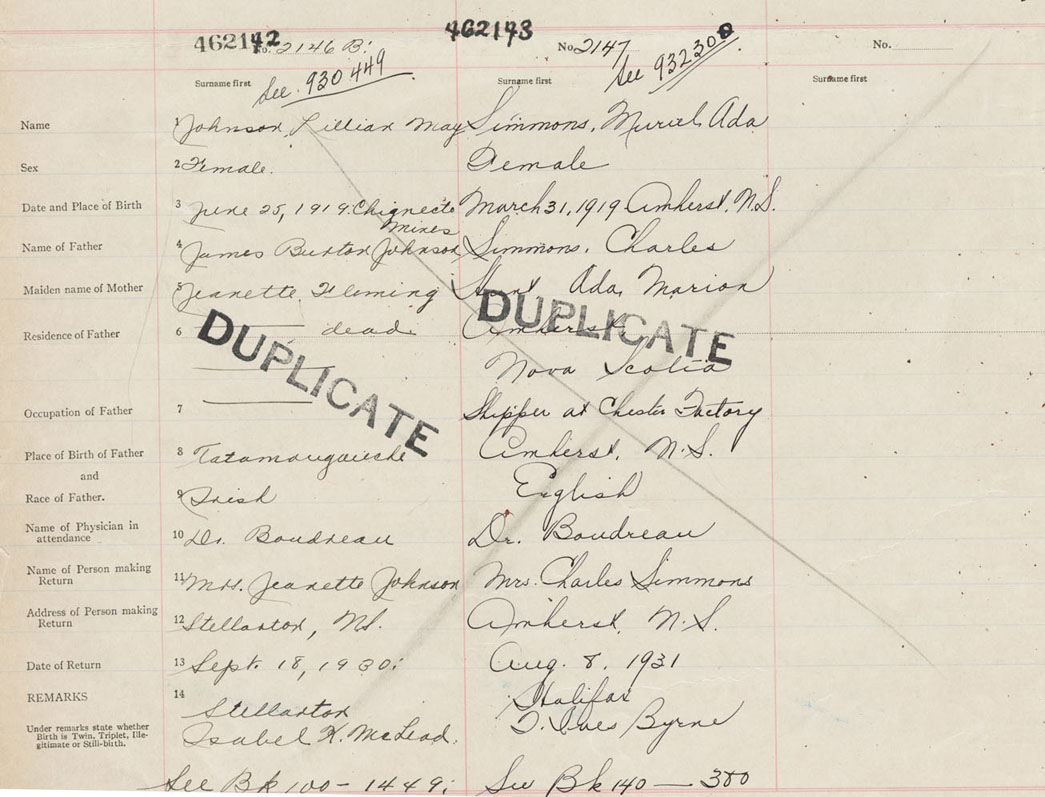 462142
No. 2146 B.
See 930449
Surname first
462143
No. 2147
See 932300
Surname first
No.
Surname first
Name
1 Johnson, Lillian May
Simmons, Muriel Ada
Sex
2 Female.
Female
Date and Place of Birth
3 June 25, 1919. Chignecto Mines
March 31, 1919 Amherst, N.S.
Name of Father
4 James Burton Johnson
Simmons, Charles
Maiden name of Mother
5 Jeanette Fleming
Ada Marion
Residence of Father
6 dead.
Amherst
Nova Scotia
DUPLICATE
DUPLICATE
Occupation of Father
7
Shipper at Chester Factory
Place of Birth of Father
8
Amherst, N.S.
and
Race of Father.
9 Irish
English
Name of Physician in
attendance
10 Dr. Boudreau
Dr. Boudreau
Name of Person making
Return
11 Mrs. Jeanette Johnson
Mrs. Charles Simmons
Address of Person making
Return
12 Stellarton, N.S.
Amherst, N.S.
Date of Return
13 Sept. 18, 1930.
Aug. 8, 1931
REMARKS
14
Stellarton
Halifax
Under remarks state whether
Birth is Twin, Triplet, Ille-
gitimate or Still-birth.
Isabel K. McLeod.
Byrne
See Bk 100 - 1449.
See Bk 140 — 380